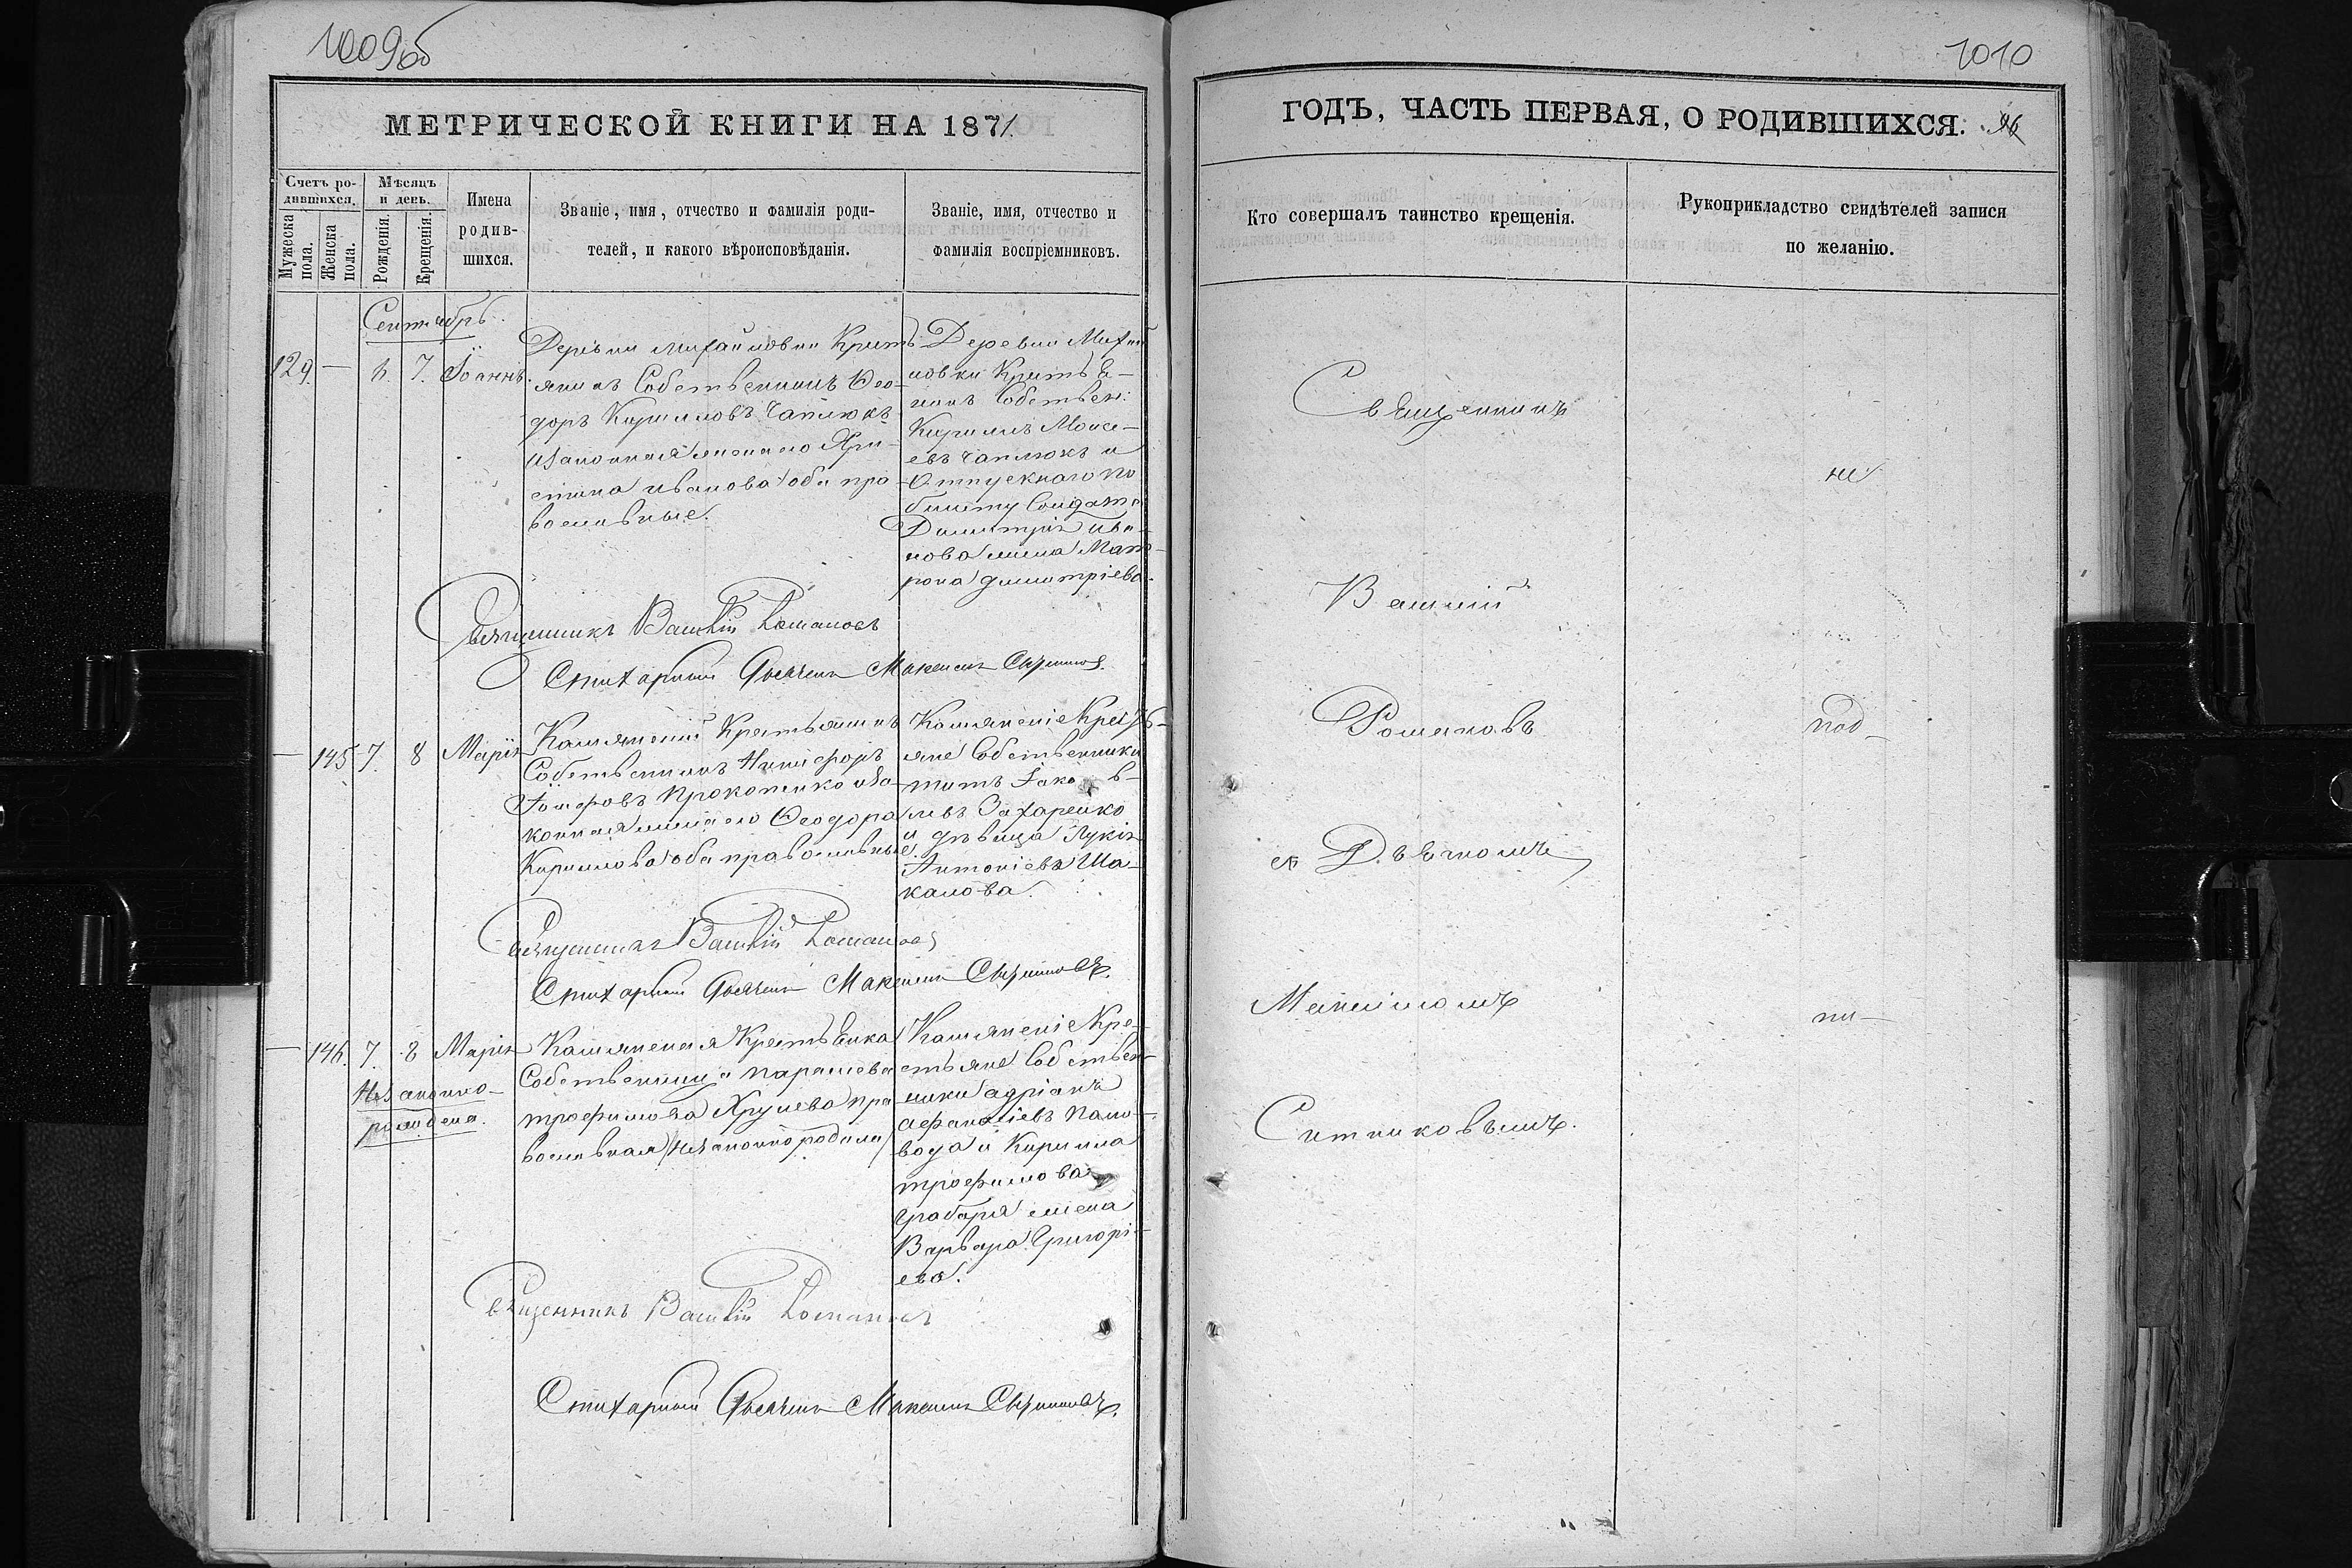 1009об
1010
МЕТРИЧЕСКОЙ КНИГИ НА 1871.
Счетъ ро-
дившихся.
Мужеска пола.
Женска пола.
Мѣсяцъ
и день.
Рожденія.
Крещенія.
Имена
родив-
шихся.
Званіе, имя, отчество и фамилія роди-
телей, и какого вѣроисповѣданія.
Званіе, имя, отчество и
фамилія воспріемниковъ.
Сентябрь.
129. — 6. 7. Іоаннъ
Деревни Михайловки Кресть
янинъ Собственникъ Ѳео-
доръ Кирилловъ Чаплюкъ
и законная жена его Хри-
стина Иванова оба пра-
вославные.
Деревни Михай
ловки Крестья-
нинъ Собствен:
Кириллъ Моисе-
евъ Чаплюкъ и
Отпускнаго по
билету Солдата
Димитрія Ива-
нова жена Мат-
рона Димитріева.
Священникъ Василій Романовъ
Стихарный Дьячекъ Максимъ Ситниковъ.
— 145 7. 8 Марія
Крестьянинъ
Собственникъ Никифоръ
Прокопенко и за-
конная жена его Ѳеодора
Кириллова оба православные.
Крестъ-
яне Собственники
Титъ Яков-
левъ Захаренко
и дѣвица Лукія
Антоніева Ша-
калова.
Священникъ Василій Романовъ
Стихарный Дьячекъ Максимъ Ситниковъ.
— 146. 7. 8 Марія
Незаконно-
рождена.
Крестьянка
Собственница Параскева
Трофимова пра
вославная (незаконно родила)
Кре-
стьяне Собствен-
ники Адріанъ
Афанасіевъ Пано-
вода и Кирилла
Трофимова
Грабаря жена
Варвара Григорі-
ева.
Священникъ Василій Романовъ
Стихарный Дьячекъ Максимъ Ситниковъ.
ГОДЪ, ЧАСТЬ ПЕРВАЯ, О РОДИВШИХСЯ.
Кто совершалъ таинство крещенія.
Рукоприкладство свидѣтелей записи
по желанію.
Священникъ
не
Василій
Романовъ
под-
съ Дьячкомъ
Максимомъ
пи-
Ситниковымъ.